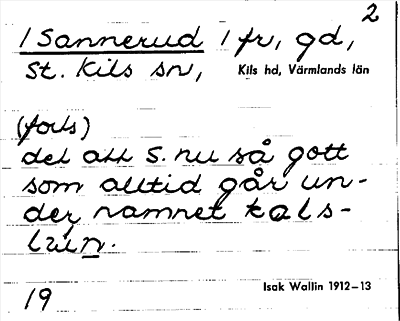 2
1 Sannerud 1 fr, gd,
St. Kils sn, Kils hd, Värmlands län
(forts)
det att S. nu så gott
som alltid går un-
der namnet
19 Isak Wallin 1912–13